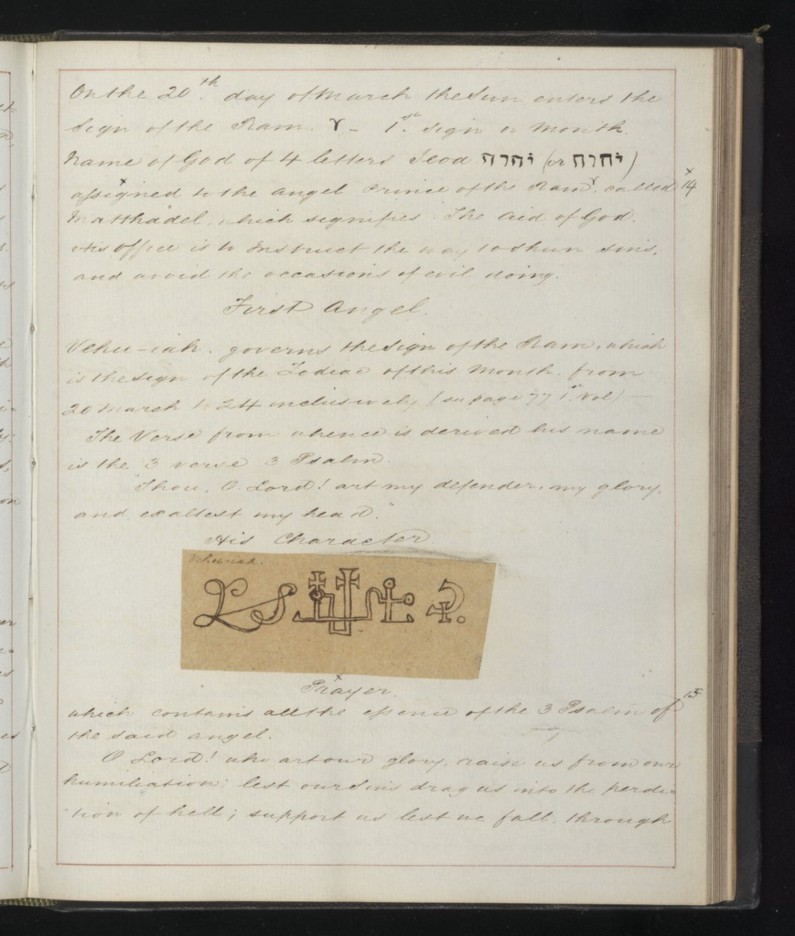 On the 20.th day of March the Sun enters the
Sign of the Ram. ♈ - 1.st sign or Month.
Name of God of 4 letters יהוה (or יהוה)
assigned to the Angel Prince of the Ram, called 14
which signifies The aid of God.
His office is to Instruct the way to shun sins,
and avoid the occasions of evil doing.
First Angel.
Vehu-iah. governs the Sign of the Ram, which
is the sign of the Zodiac of this Month, from
20 March to 24 inclusively (see page 77 1st Vol) —
The Verse from whence is derived his name
is the 3 verse 3 Psalm.
"Thou, O Lord! art my defender, my glory,
and exaltest my head."
His Character
Vehu-iah.
Prayer.
which contains all the essence of the 3 Psalm of 15
the said angel.
O Lord! who art our glory, raise us from our
humiliation; lest our Sins drag us into the perdi-
tion of hell; support us lest we fall through